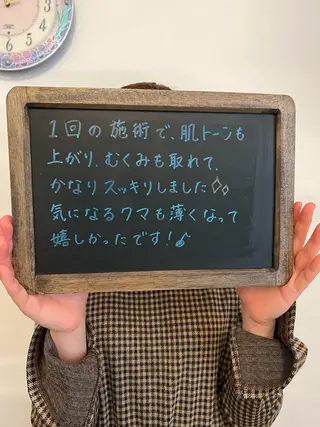 1回の施術で、肌トーンも
上がり、むくみも取れて、
かなりスッキリしました
気になるクマも薄くなって
嬉しかったです!♪